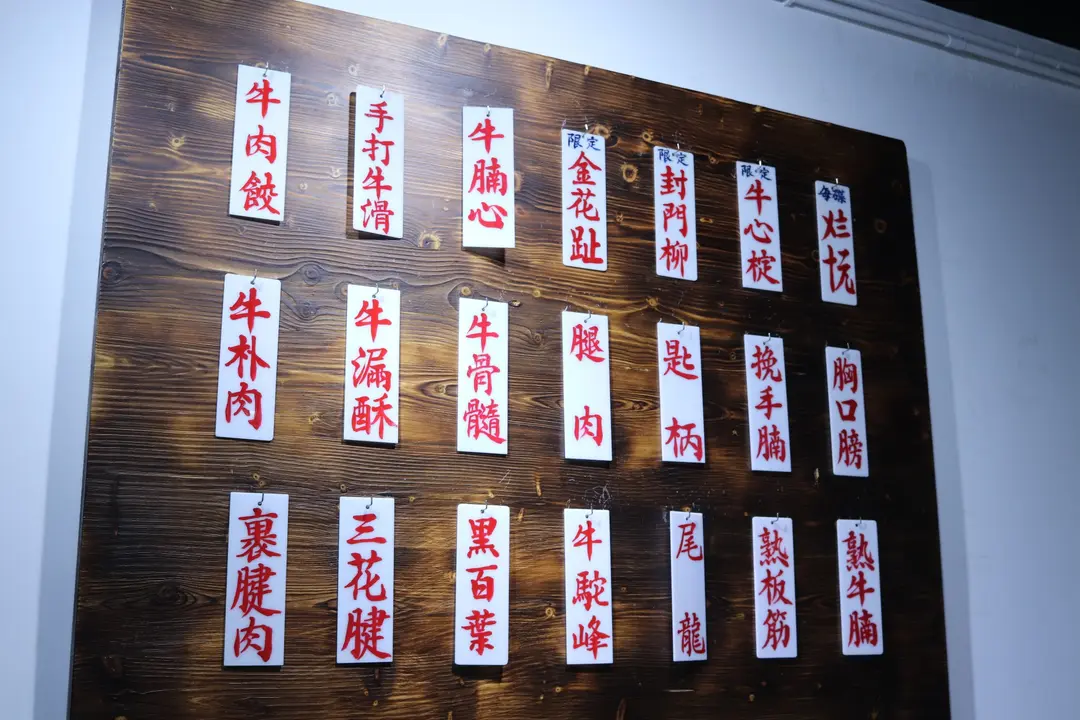 牛肉餃
手打牛滑
牛腩心
限定
金花趾
封門柳
限定
牛心椗
限定
牛朴肉
牛漏酥
牛骨髓
腿肉
匙柄
挽手腩
胸口膀
裹腱肉
三花腱
黑百葉
牛駝峰
尾龍
熟板筋
熟牛腩